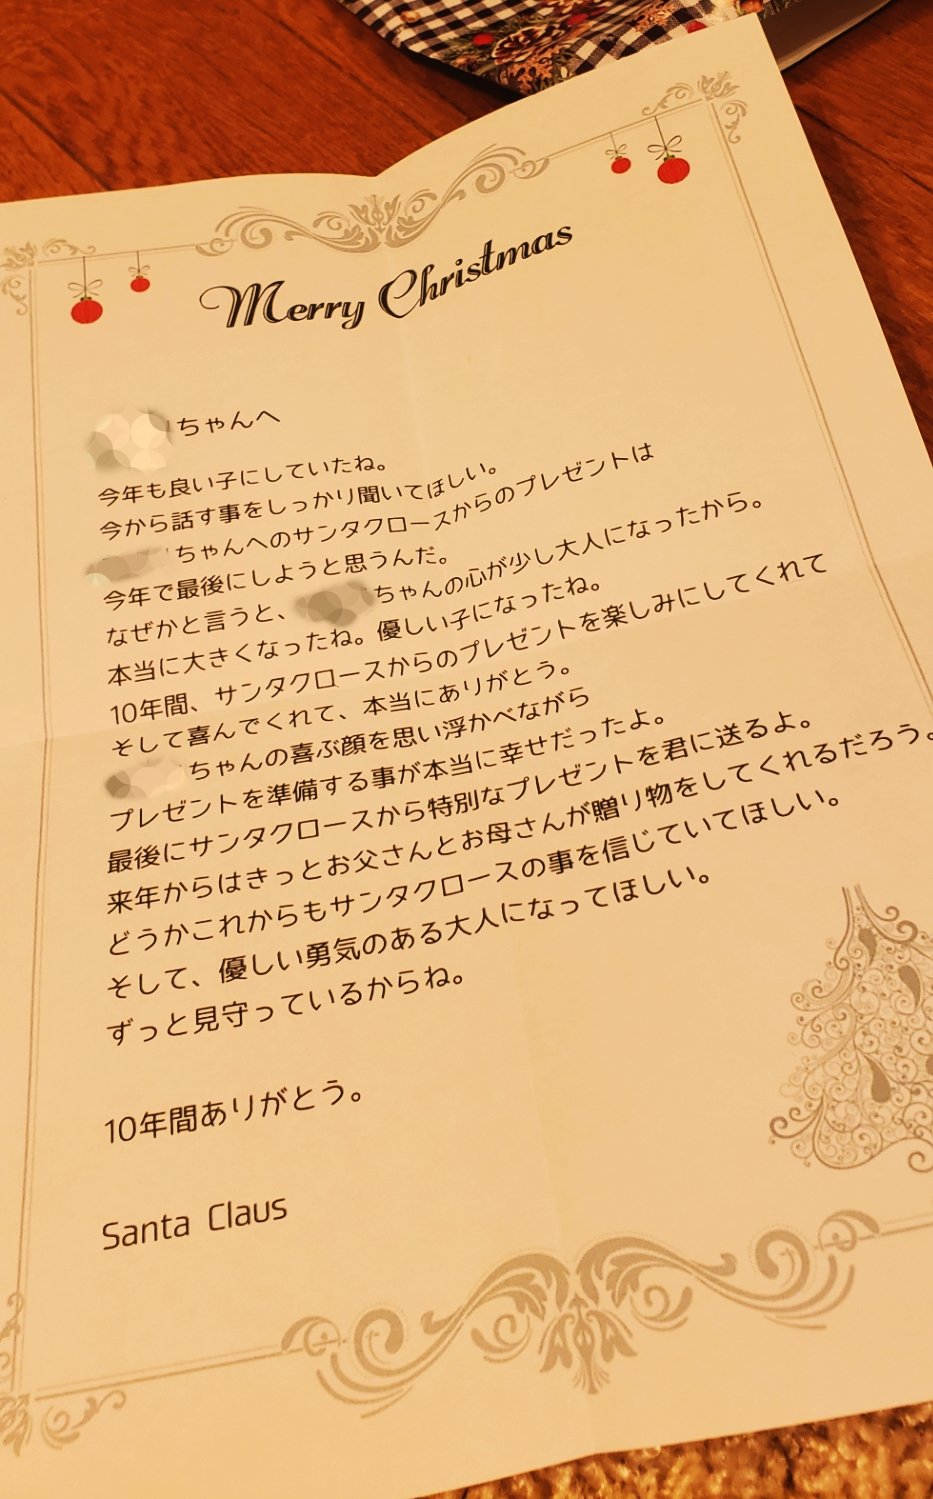 Merry Christmas
ちゃんへ
今年も良い子にしていたね。
今から話す事をしっかり聞いてほしい。
ちゃんへのサンタクロースからのプレゼントは
今年で最後にしようと思うんだ。
なぜかと言うと、ちゃんの心が少し大人になったから。
本当に大きくなったね。優しい子になったね。
10年間、サンタクロースからのプレゼントを楽しみにしてくれて
そして喜んでくれて、本当にありがとう。
ちゃんの喜ぶ顔を思い浮かべながら
プレゼントを準備する事が本当に幸せだったよ。
最後にサンタクロースから特別なプレゼントを君に送るよ。
来年からはきっとお父さんとお母さんが贈り物をしてくれるだろう。
どうかこれからもサンタクロースの事を信じていてほしい。
そして、優しい勇気のある大人になってほしい。
ずっと見守っているからね。
10年間ありがとう。
Santa Claus